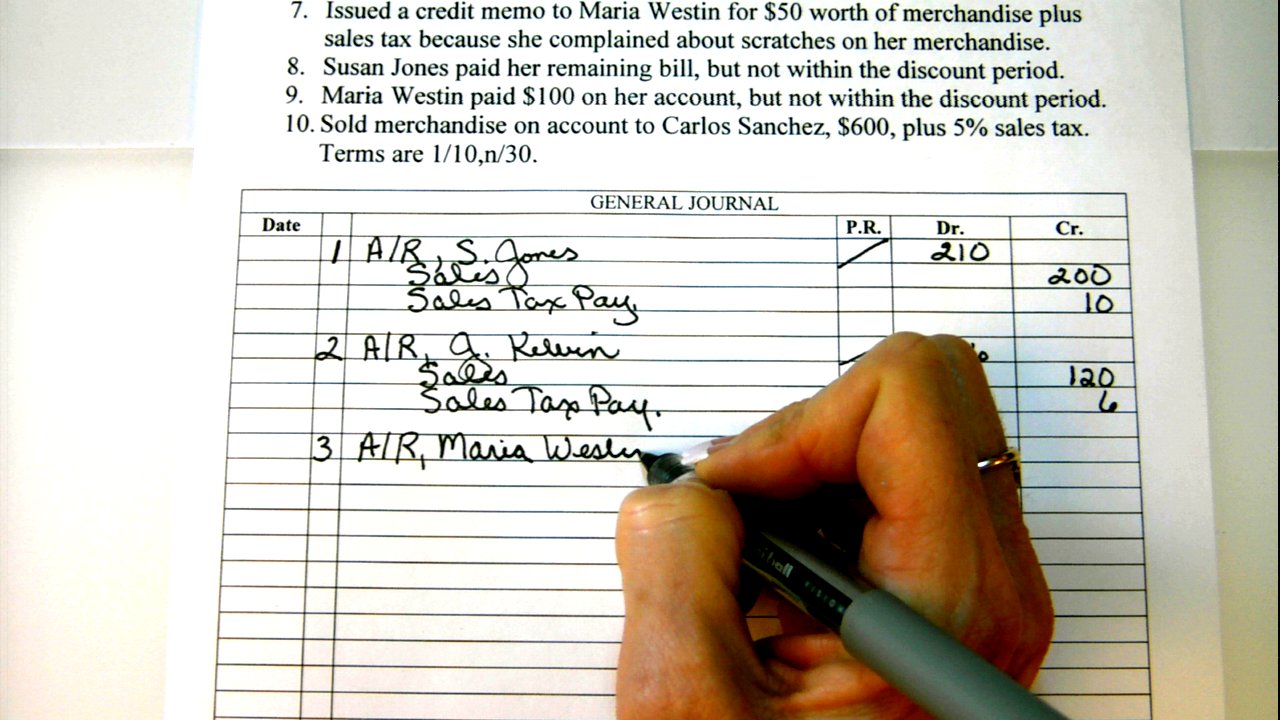 7. Issued a credit memo to Maria Westin for $50 worth of merchandise plus
sales tax because she complained about scratches on her merchandise.
8. Susan Jones paid her remaining bill, but not within the discount period.
9. Maria Westin paid $100 on her account, but not within the discount period.
10. Sold merchandise on account to Carlos Sanchez, $600, plus 5% sales tax.
Terms are 1/10,n/30.
GENERAL JOURNAL
Date P.R. Dr. Cr.
1 A/R, S. Jones 210
Sales 200
Sales Tax Pay. 10
2 A/R, J. Kelvin
Sales 120
Sales Tax Pay. 6
3 A/R, Maria Westin